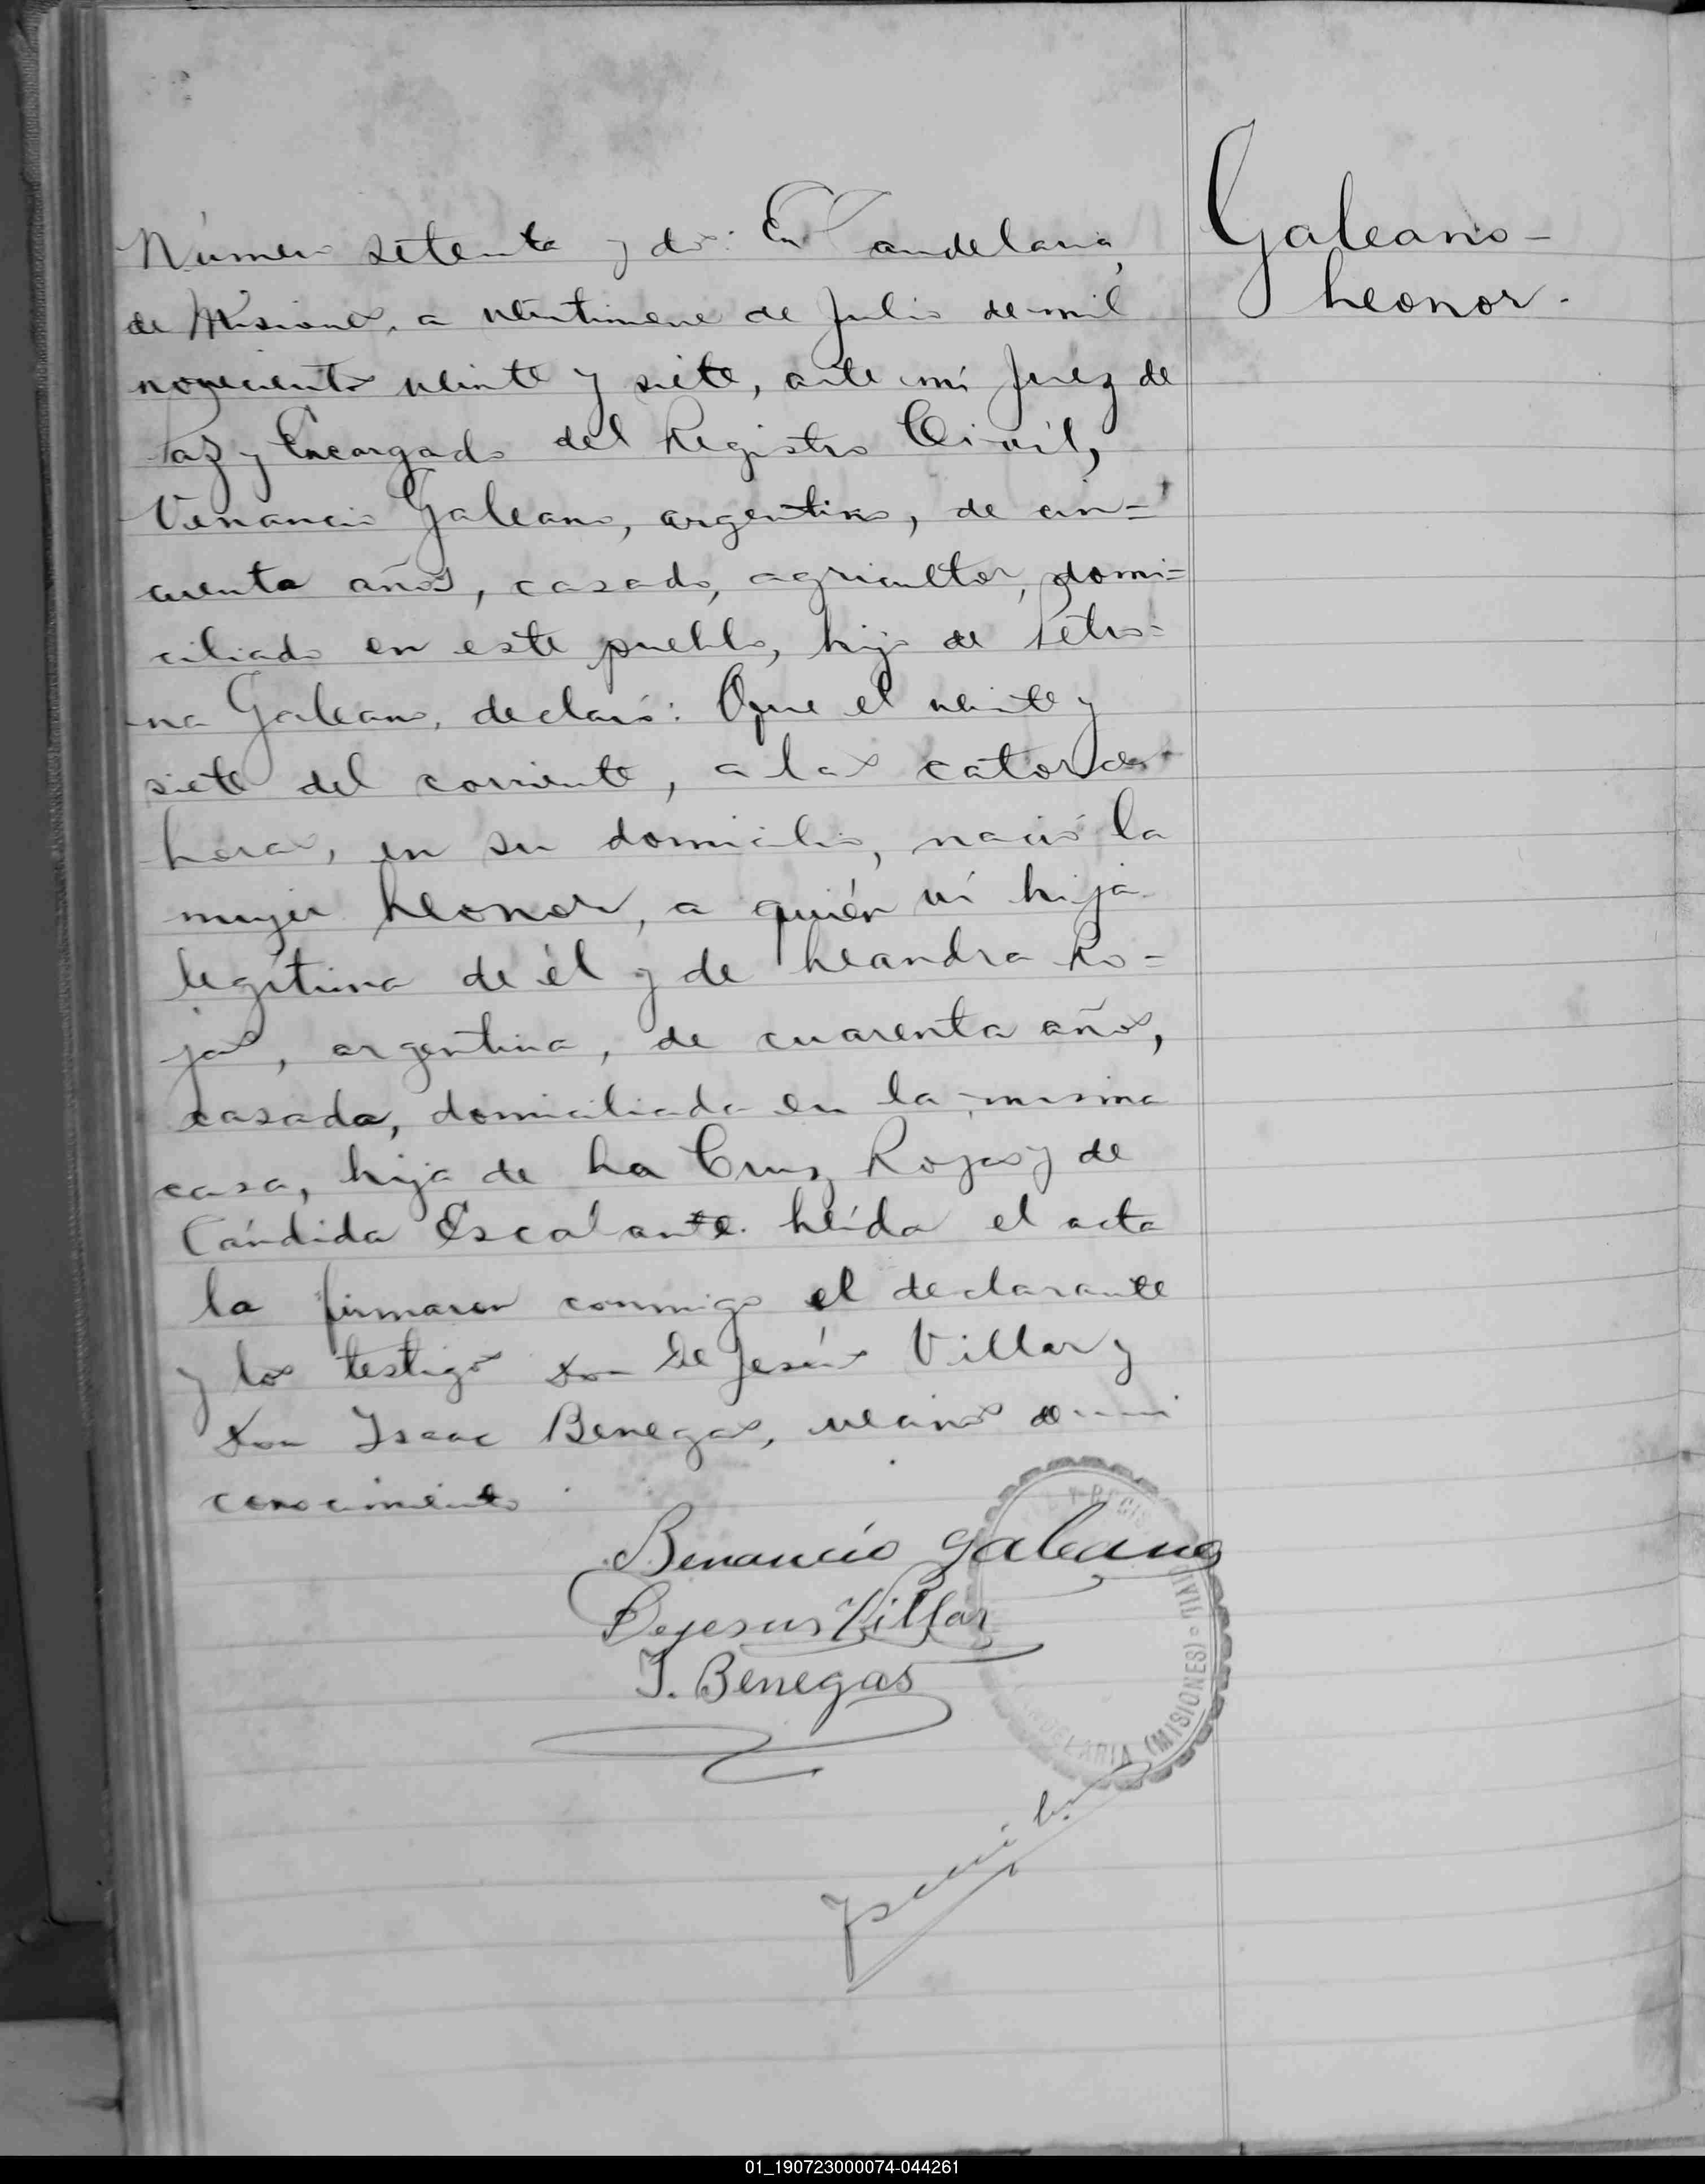 Número setenta y dos: En Candelaria,
de Misiones, a veintinueve de Julio de mil
novecientos veinte y siete, ante mí Juez de
Paz y Encargado del Registro Civil,
Venancio Galeano, argentino, de cin=
cuenta años, casado, agricultor, domi=
ciliado en este pueblo, hijo de Petro=
na Galeano, declaró: Que el veinte y
siete del corriente, a las catorce
horas, en su domicilio, nació la
mujer Leonor, a quién ví hija
legítima de él y de Leandra Ro=
jas, argentina, de cuarenta años,
casada, domiciliada en la misma
casa, hija de La Cruz Rojas y de
Cándida Escalante. Leída el acta
la firmaron conmigo el declarante
y los testigos don De Jesús Villar y
don Isaac Benegas, vecinos de mi
conocimiento.
Galeano-
Leonor.
Benancio Galeano
Dejesus Villar
I. Benegas
Y REGIS CIVIL = NDELARIA (MISIONES)
01_190723000074-044261